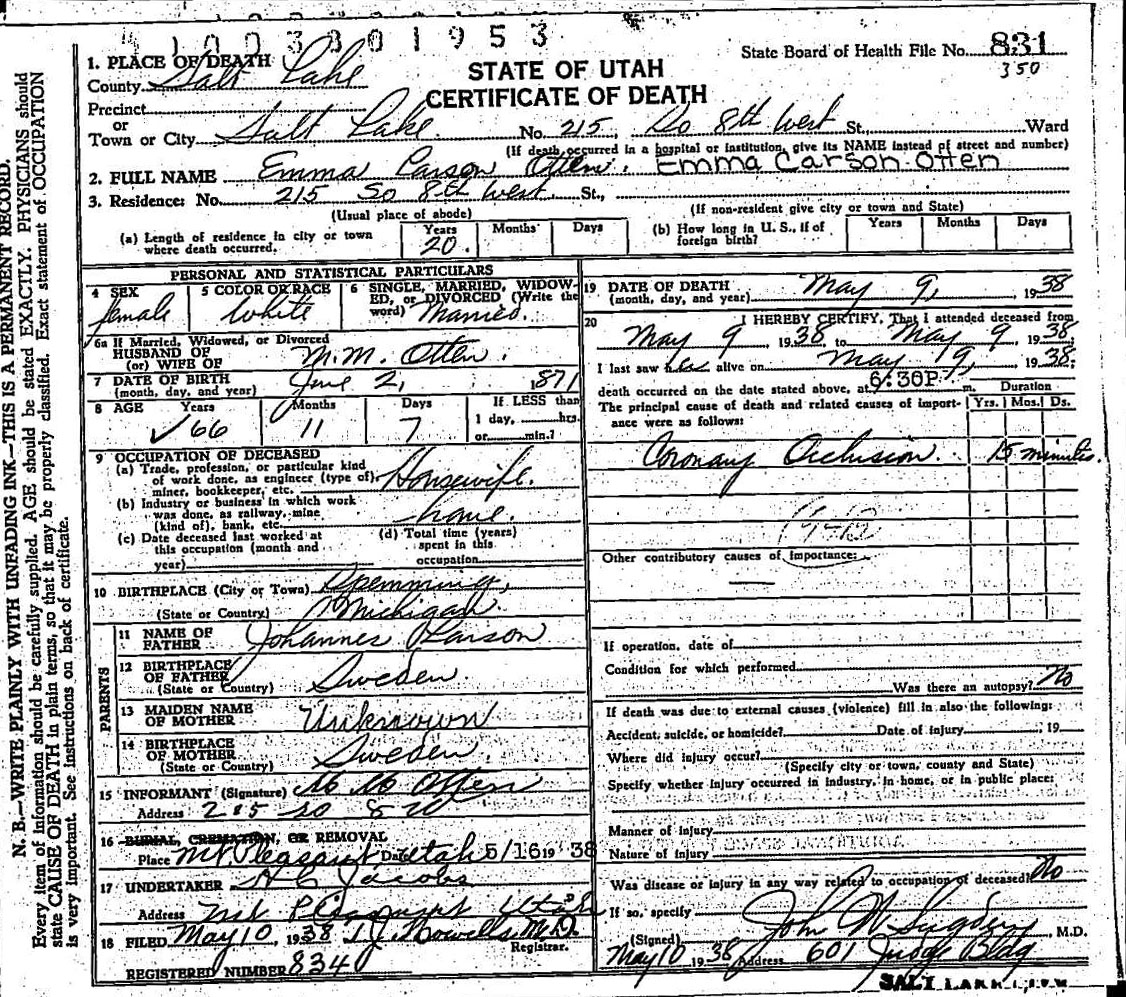 41003801953
State Board of Health File No. 831
350
STATE OF UTAH
CERTIFICATE OF DEATH
1. PLACE OF DEATH
County Salt Lake
Precinct
or
Town or City Salt Lake No. 215 So 8th West St., Ward
(If death occurred in a hospital or institution, give its NAME instead of street and number)
2. FULL NAME Emma Larson Otten. Emma Carson Otten
3. Residence: No. 215 So 8th West St.,
(Usual place of abode) (If non-resident give city or town and State)
(a) Length of residence in city or town where death occurred. Years 20. Months Days
(b) How long in U. S., if of foreign birth? Years Months Days
PERSONAL AND STATISTICAL PARTICULARS
4 SEX female
5 COLOR OR RACE White
6 SINGLE, MARRIED, WIDOWED, or DIVORCED (Write the word) Married.
6a If Married, Widowed, or Divorced
HUSBAND OF
(or) WIFE OF M. M. Otten.
7 DATE OF BIRTH
(month, day, and year) June 2, 1871
8 AGE Years 66 Months 11 Days 7 If LESS than 1 day, hrs. or min.?
9 OCCUPATION OF DECEASED
(a) Trade, profession, or particular kind of work done, as engineer (type of), miner, bookkeeper, etc. Housewife.
(b) Industry or business in which work was done, as railway, mine (kind of), bank, etc. home.
(c) Date deceased last worked at this occupation (month and year)
(d) Total time (years) spent in this occupation
10 BIRTHPLACE (City or Town)
(State or Country) Michigan.
PARENTS
11 NAME OF FATHER Johannes Larson
12 BIRTHPLACE OF FATHER
(State or Country) Sweden.
13 MAIDEN NAME OF MOTHER Unknown
14 BIRTHPLACE OF MOTHER
(State or Country) Sweden.
15 INFORMANT (Signature) M M Otten
Address 215 So 8 W
16 BURIAL, CREMATION, OR REMOVAL
Place Mt Pleasant Utah Date 5/16 1938
17 UNDERTAKER
Jacobs
Address Mt Pleasant Utah
18 FILED May 10, 1938 M.D.
Registrar.
REGISTERED NUMBER 834
19 DATE OF DEATH
(month, day, and year) May 9, 1938
20 I HEREBY CERTIFY, That I attended deceased from
May 9, 1938 to May 9, 1938;
I last saw her alive on May 9, 1938;
death occurred on the date stated above, at 6:30P m.
The principal cause of death and related causes of importance were as follows: Duration Yrs. Mos. Ds.
Coronary Occlusion. 15 minutes.
Other contributory causes of importance:
If operation, date of
Condition for which performed
Was there an autopsy? No
If death was due to external causes (violence) fill in also the following:
Accident, suicide, or homicide? Date of injury , 19
Where did injury occur?
(Specify city or town, county and State)
Specify whether injury occurred in industry, in home, or in public place:
Manner of injury
Nature of injury
Was disease or injury in any way related to occupation of deceased? No
If so, specify
(Signed) John W Sugden, M.D.
May 10 1938 Address 601 Judge Bldg
SALT LAKE CITY
N. B.—WRITE PLAINLY WITH UNFADING INK—THIS IS A PERMANENT RECORD.
Every item of information should be carefully supplied. AGE should be stated EXACTLY. PHYSICIANS should
state CAUSE OF DEATH in plain terms, so that it may be properly classified. Exact statement of OCCUPATION
is very important. See instructions on back of certificate.